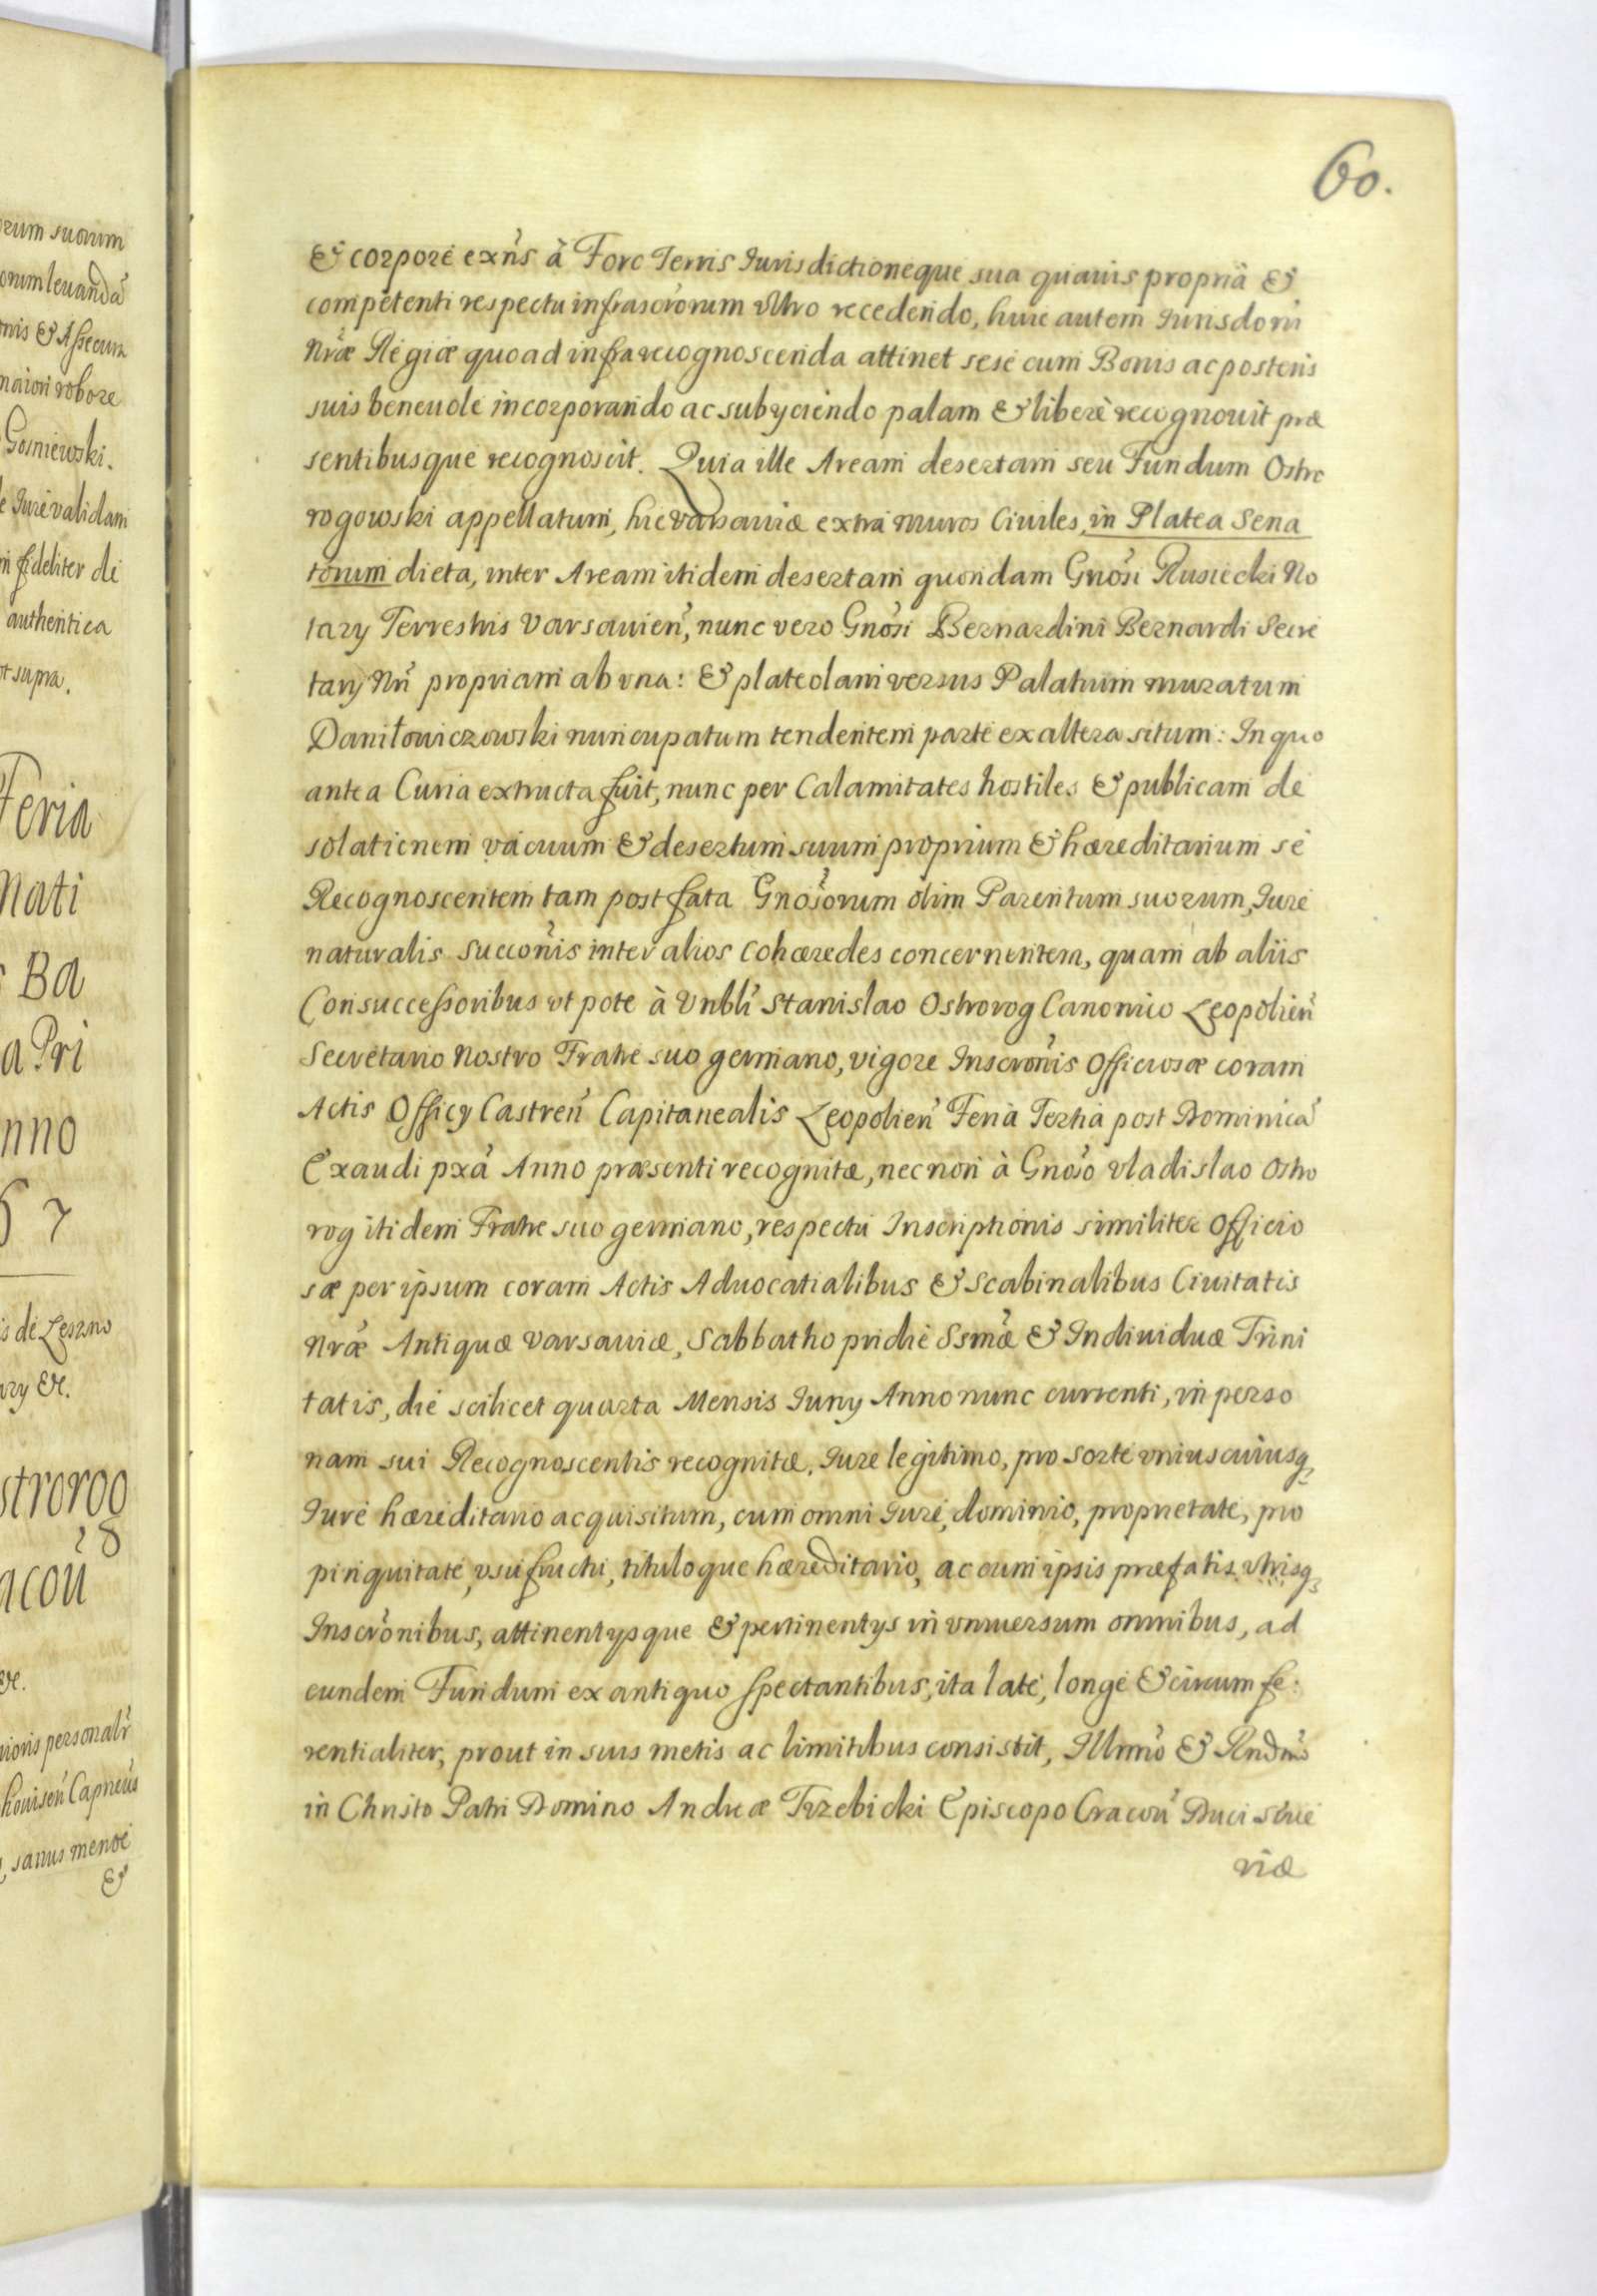 orum suorum
orum leuandâ
onis & Assecura
maiori robore
Gosniewski.
e Iure validam
m fideliter de
authentica
ut supra.
Feria
Nati
s Ba
a Pri
nno
6 7
is de Leszno
ary &c.
strorog
28
acoũ
&c.
nioris personalr̃
houiseñ Capneus̃
, sanus mente
&
60.
& corpore exñs à Foro Terris Iurisdictioneque sua quauis propriâ &
competenti respectu infrascr̃orum vltro recedendo, huic autem Iurisdoni
Nr̃æ Regiæ quoad infra recognoscenda attinet sese cum Bonis ac posteris
suis beneuole incorporando ac subyciendo palam & liberè recognouit præ
sentibusque recognoscit. Quia ille Aream desertam seu Fundum Ostro
rogowski appellatum, hic Varsauiæ extra muros Ciuiles, in Platea Sena
torum dicta, inter Aream itidem desertam quondam Gnosi Rusiecki No
tary Terrestris Varsauien̾, nunc vero Gnosi Bernardini Bernardi Secre
tary Nri propriam ab vna: & plateolam versus Palatium muratum
Daniłowiczowski nuncupatum tendentem parte ex altera situm: In quo
antea Curia extructa fuit, nunc per Calamitates hostiles & publicam de
solationem vacuum & desertum suum proprium & hæreditarium se
Recognoscentem tam post fata Gnosorum olim Parentum suorum, Iure
naturalis succonis inter alios Cohæredes concernentem, quam ab aliis
Consuccessoribus vt pote à Vnbli Stanislao Ostrorog Canonico Leopolien̾
Secretario Nostro Fratre suo germano, vigore Inscronis Officiosæ coram
Actis Officy Castren̾ Capitanealis Leopolien̾ Feria Tertia post Dominicâ
Exaudi pxâ Anno præsenti recognitæ, necnon à Gnoso Vladislao Ostro
rog itidem Fratre suo germano, respectu Inscriptionis similiter Officio
sæ per ipsum coram Actis Aduocatialibus & Scabinalibus Ciuitatis
Nræ Antiquæ Varsauiæ, Sabbatho pridie Ssmæ & Indiuiduæ Trini
tatis, die scilicet quarta Mensis Iuny Anno nunc currenti, in perso
nam sui Recognoscentis recognitæ, Iure legitimo, pro sorte vniuscuiusq,
Iure hæreditario acquisitum, cum omni Iure, dominio, proprietate, pro
pinquitate, vsufructu, tituloque hæreditario, ac cum ipsis præfatis vtrisq,
Inscronibus, attinentysque & pertinentys in vniuersum omnibus, ad
eundem Fundum ex antiquo spectantibus, ita late, longe & circumfe:
rentialiter, prout in suis metis ac limitibus consistit, Illmo & Rndmo
in Christo Patri Domino Andreæ Trzebicki Episcopo Cracou̾ Duci Seue
riæ